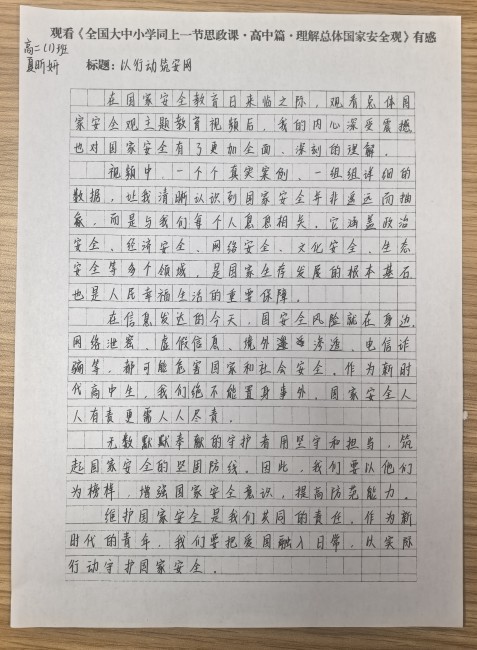 观看《全国大中小学同上一节思政课·高中篇·理解总体国家安全观》有感
高二(1)班
夏昕妍
标题：以行动筑安网
在国家安全教育日来临之际，观看总体国
家安全观主题教育视频后，我的内心深受震撼
也对国家安全有了更加全面、深刻的理解。
视频中，一个个真实案例、一组组详细的
数据，让我清晰认识到国家安全并非遥远而抽
象，而是与我们每个人息息相关。它涵盖政治
安全、经济安全、网络安全、文化安全、生态
安全等多个领域，是国家生存发展的根本基石
也是人民幸福生活的重要保障。
在信息发达的今天，国安全风险就在身边，
网络泄密、虚假信息、境外渗透、电信诈
骗等，都可能危害国家和社会安全。作为新时
代高中生，我们绝不能置身事外，国家安全人
人有责更需人人尽责。
无数默默奉献的守护者用坚守和担当，筑
起国家安全的坚固防线。因此，我们要以他们
为榜样，增强国家安全意识，提高防范能力。
维护国家安全是我们共同的责任。作为新
时代的青年，我们要把爱国融入日常，以实际
行动守护国家安全。